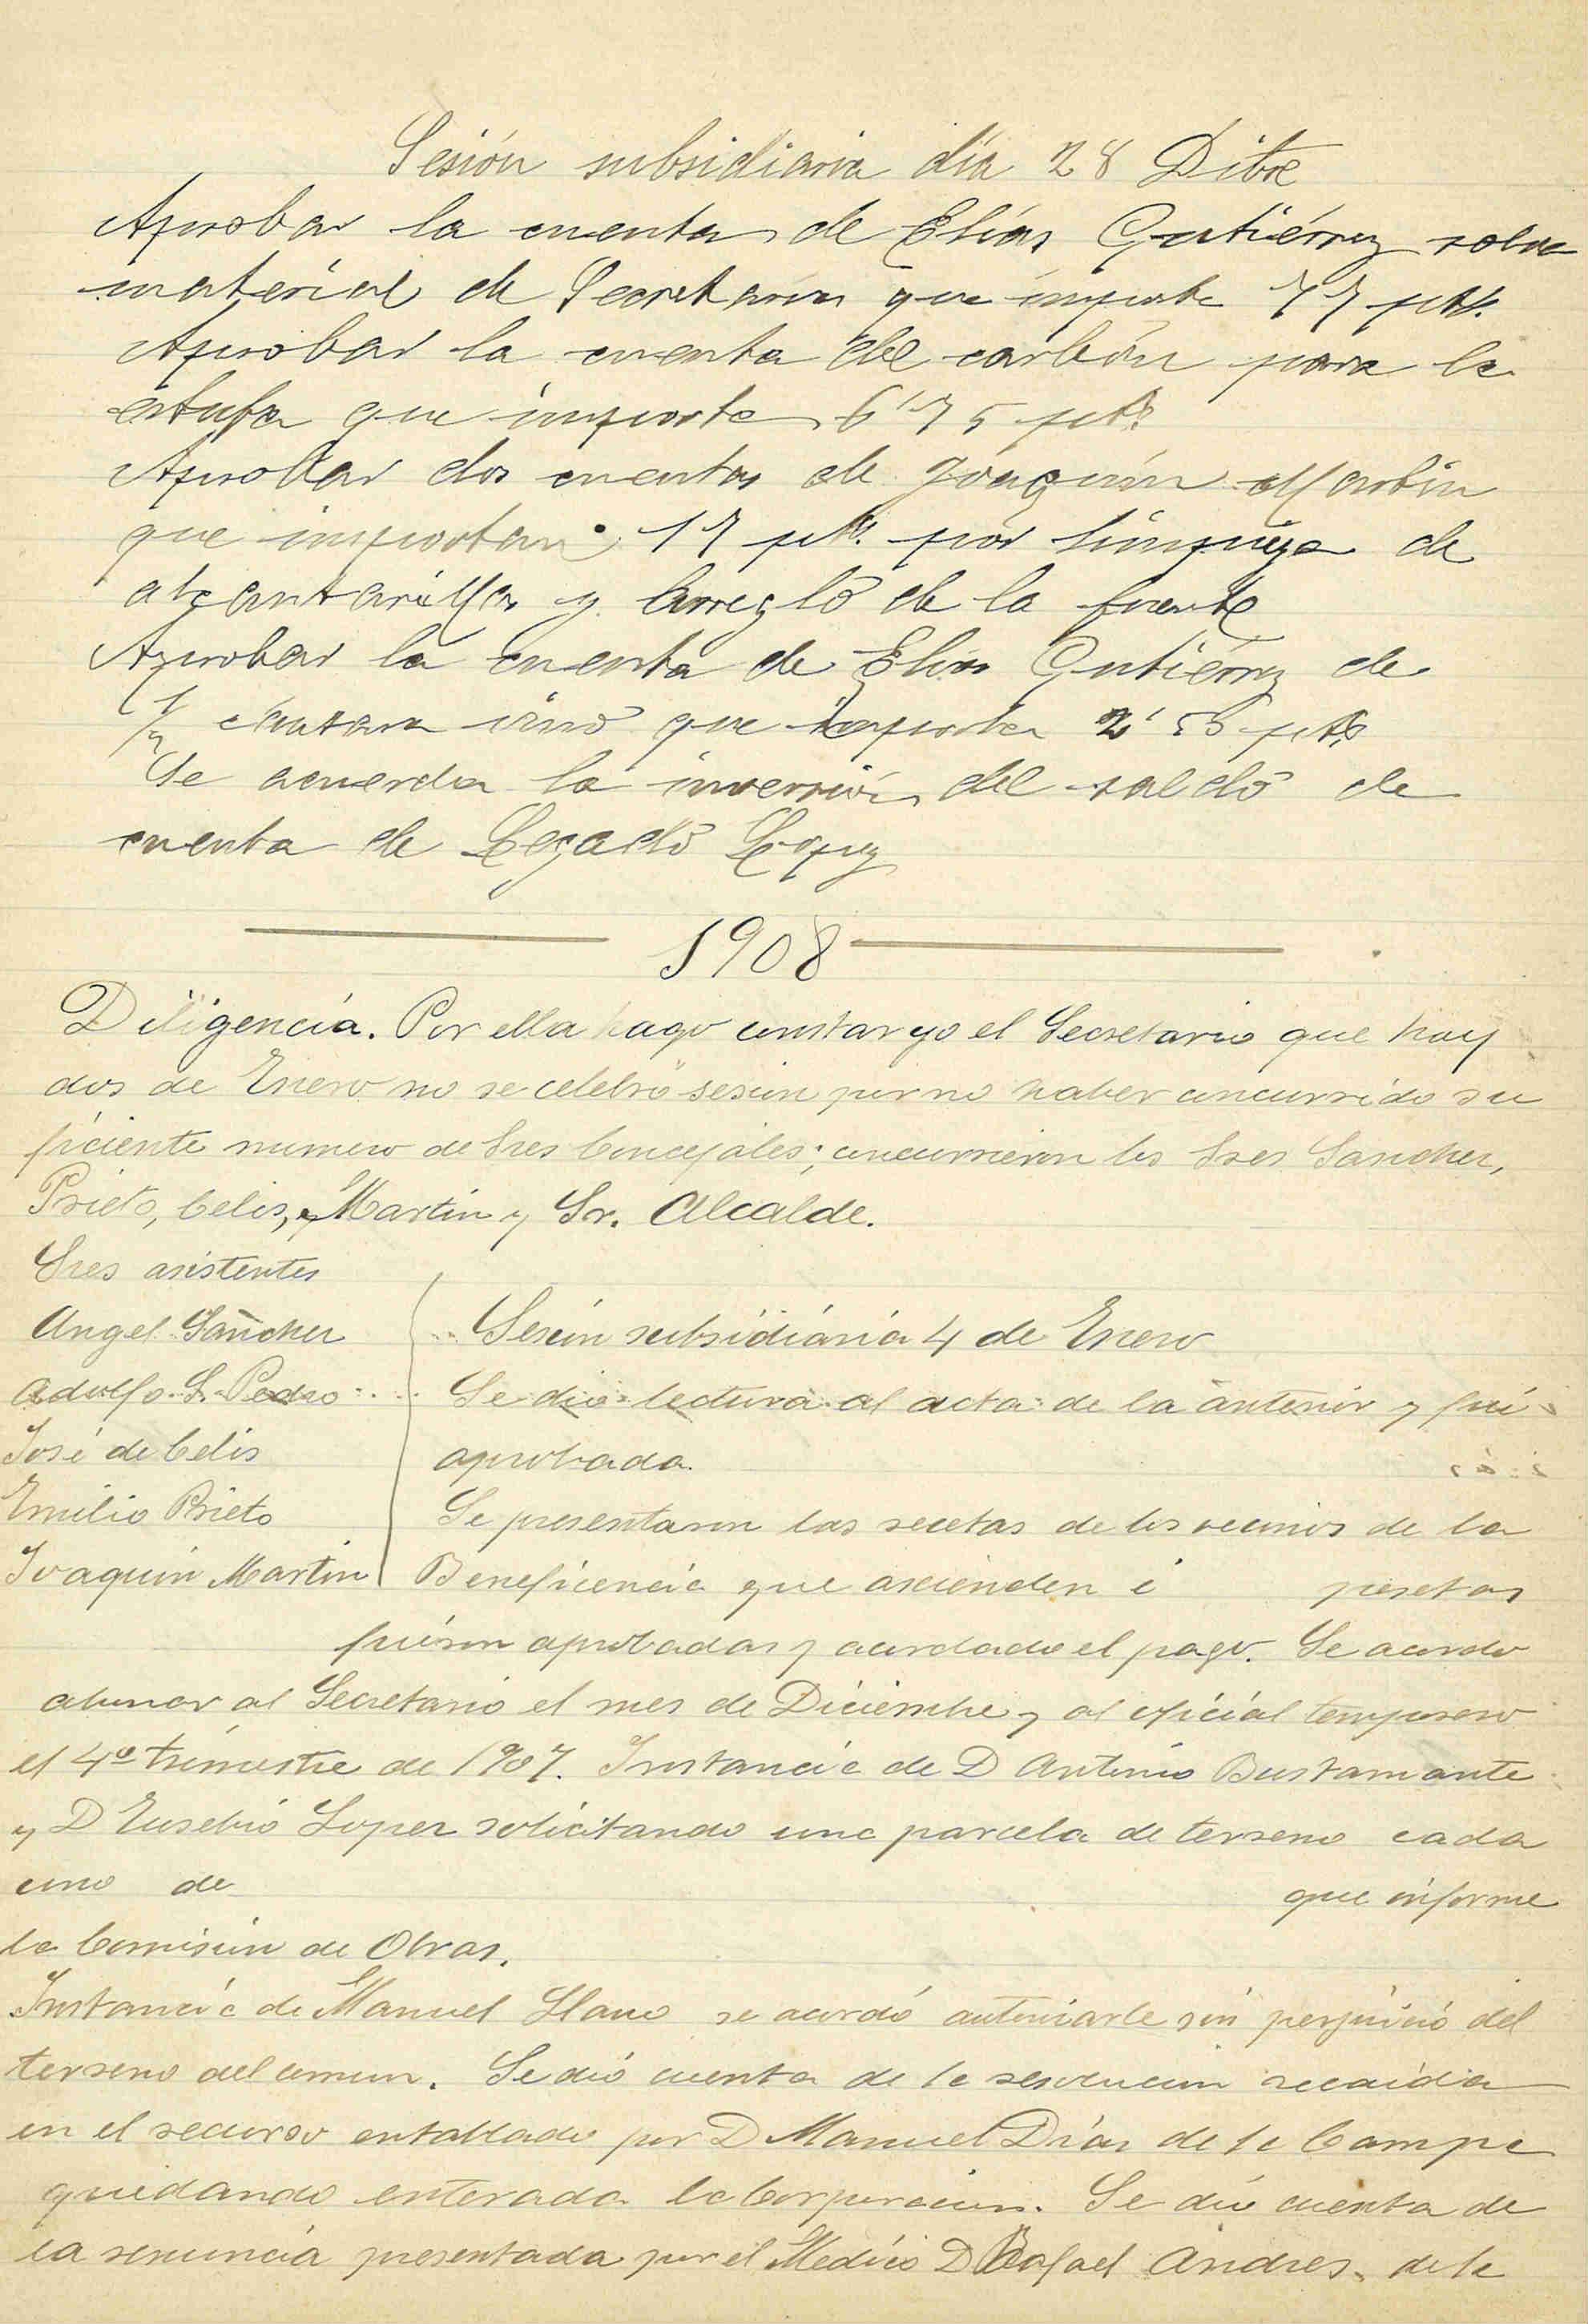 Sesión subsidiaria día 28 Dibre
Aprobar la cuenta de Elías Gutiérrez sobre
material de Secretaria que importa 77 ptas.
Aprobar la cuenta del carbón para la
estufa que importa 6'75 ptas
Aprobar dos cuentas de Joaquín Martín
que importan 17 ptas. por limpieza de
alcantarillas y arreglo de la fuente
Aprobar la cuenta de Elías Gutiérrez de
1/2 cántara vino que importa 2'55 ptas
Se acuerda la inversión del saldo de
cuenta de Legado López
1908
Diligencia. Por ella hago constar yo el Secretario que hoy
dos de Enero no se celebró sesión por no haber concurrido su
ficiente numero de Sres Concejales; concurrieron los Sres Sanchez,
Prieto, Celis, y Martin y Sr. Alcalde.
Sres asistentes
Angel Sanchez
Adolfo S. Pedro
José de Celis
Emilio Prieto
Joaquin Martin
Sesión subsidiária 4 de Enero
Se dió lectura al acta de la anterior y fué
aprobada.
Se presentaron las recetas de los vecinos de la
Beneficencia que ascienden á pesetas
fuéron aprobadas y acordado el pago. Se acordo
abonar al Secretario el mes de Diciembre y al oficial temporero
el 4º trimestre de 1907. Instancia de D Antonio Bustamante
y D Eusebio Lopez solicitando una parcela de terreno cada
uno de que informe
la Comision de Obras.
Instancia de Manuel Llano se acordó autorizarle sin perjuicio del
terreno del comun. Se dió cuenta de la resolucion recaida
en el recurso entablado por D Manuel Díaz de la Campa
quedando enterada la Corporacion. Se dió cuenta de
la renuncia presentada por el Medico D Rafael Andres de la